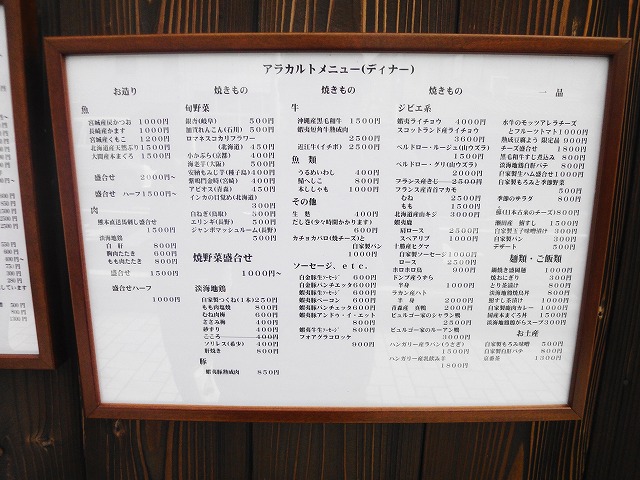 アラカルトメニュー(ディナー)
お造り
魚
宮城産戻かつお 1000円
長崎産かます 1000円
宮城産くもこ 1200円
北海道産天然ぶり 1500円
大間産本まぐろ 1500円
盛合せ 2000円～
盛合せ ハーフ 1500円～
肉
熊本直送馬刺し盛合せ
1500円
淡海地鶏
白肝 800円
胸肉たたき 600円
もも肉たたき 800円
盛合せ 1500円
盛合せハーフ
1000円
焼きもの
旬野菜
銀杏(岐阜) 500円
加賀れんこん(石川) 500円
ロマネスコカリフラワー
(北海道) 450円
小かぶら(京都) 400円
海老芋(大阪) 500円
安納もみじ芋(種子島) 400円
紫鳴門金時(宮崎) 400円
アピオス(青森) 450円
インカの目覚め(北海道)
300円
白ねぎ(鳥取) 500円
エリンギ(長野) 500円
ジャンボマッシュルーム(長野)
500円
焼野菜盛合せ
1000円～
淡海地鶏
自家製つくね(1本) 250円
もも肉塩焼 800円
むね肉塩焼 600円
ささみ梅 400円
砂ずり 400円
こころ 400円
ソリレス(希少) 400円
肝焼き 800円
豚
蝦夷豚熟成肉 850円
焼きもの
牛
沖縄産黒毛和牛 1500円
蝦夷短角牛熟成肉
2500円
近江牛(イチボ) 2500円
魚類
うるめいわし 400円
鯖へしこ 800円
本ししゃも 1000円
その他
生麩 400円
だし巻(少々時間かかります)
600円
カチョカバロ(焼チーズ)と
自家製パン
1000円
ソーセージ、etc.
白金豚生ソーセージ 600円
白金豚パンチェッタ 600円
蝦夷豚生ソーセージ 600円
蝦夷豚ベーコン 600円
蝦夷豚パンチェッタ 600円
蝦夷豚アンドゥ・イ・エット
800円
蝦夷牛生ソーセージ 800円
フォアグラコロッケ
900円
焼きもの
ジビエ系
蝦夷ライチョウ 4000円
スコットランド産ライチョウ
3600円
ペルドロー・ルージュ(山ウズラ)
1500円
ペルドロー・グリ(山ウズラ)
2000円
フランス産きじ 2500円
フランス産青首マガモ
むね 2500円
もも 1500円
北海道産山キジ 3000円
蝦夷鹿
肩ロース 2500円
スペアリブ 1000円
十勝産ヒグマ
自家製ソーセージ 1000円
ロース 2500円
ホロホロ鳥 900円
ドンブ産うずら
半身 1000円
ラカン産ハト
半身 2000円
青森産 真鴨 2000円
ビュルゴー家のシャラン鴨
2500円
ビュルゴー家のルーアン鴨
3000円
ハンガリー産ラパン(うさぎ)
1500円
ハンガリー産乳飲み羊
1800円
一品
水牛のモッツアレラチーズ
とフルーツトマト 1000円
熟成豆腐よう 限定品 1000円
チーズ盛合せ 1800円
黒毛和牛すじ煮込み 800円
淡海地鶏白肝パテ 800円
自家製生ハム盛合せ 1000円
自家製もろみと季節野菜
500円
季節のサラダ 800円
蘇(日本古来のチーズ) 800円
自家製玉子味噌漬け 300円
自家製パン 300円
デザート 500円
麺類・ご飯類
鍋焼き盛岡麺 1000円
焼おにぎり 300円
とり茶漬け 800円
淡海地鶏焼鳥丼 800円
熊すじ茶漬け 1000円
自家製鹿肉カレー 1000円
国産本まぐろ丼 1500円
淡海地鶏鶏がらスープ 300円
お土産
自家製もろみ味噌 500円
自家製白肝パテ 800円
京番茶 1300円